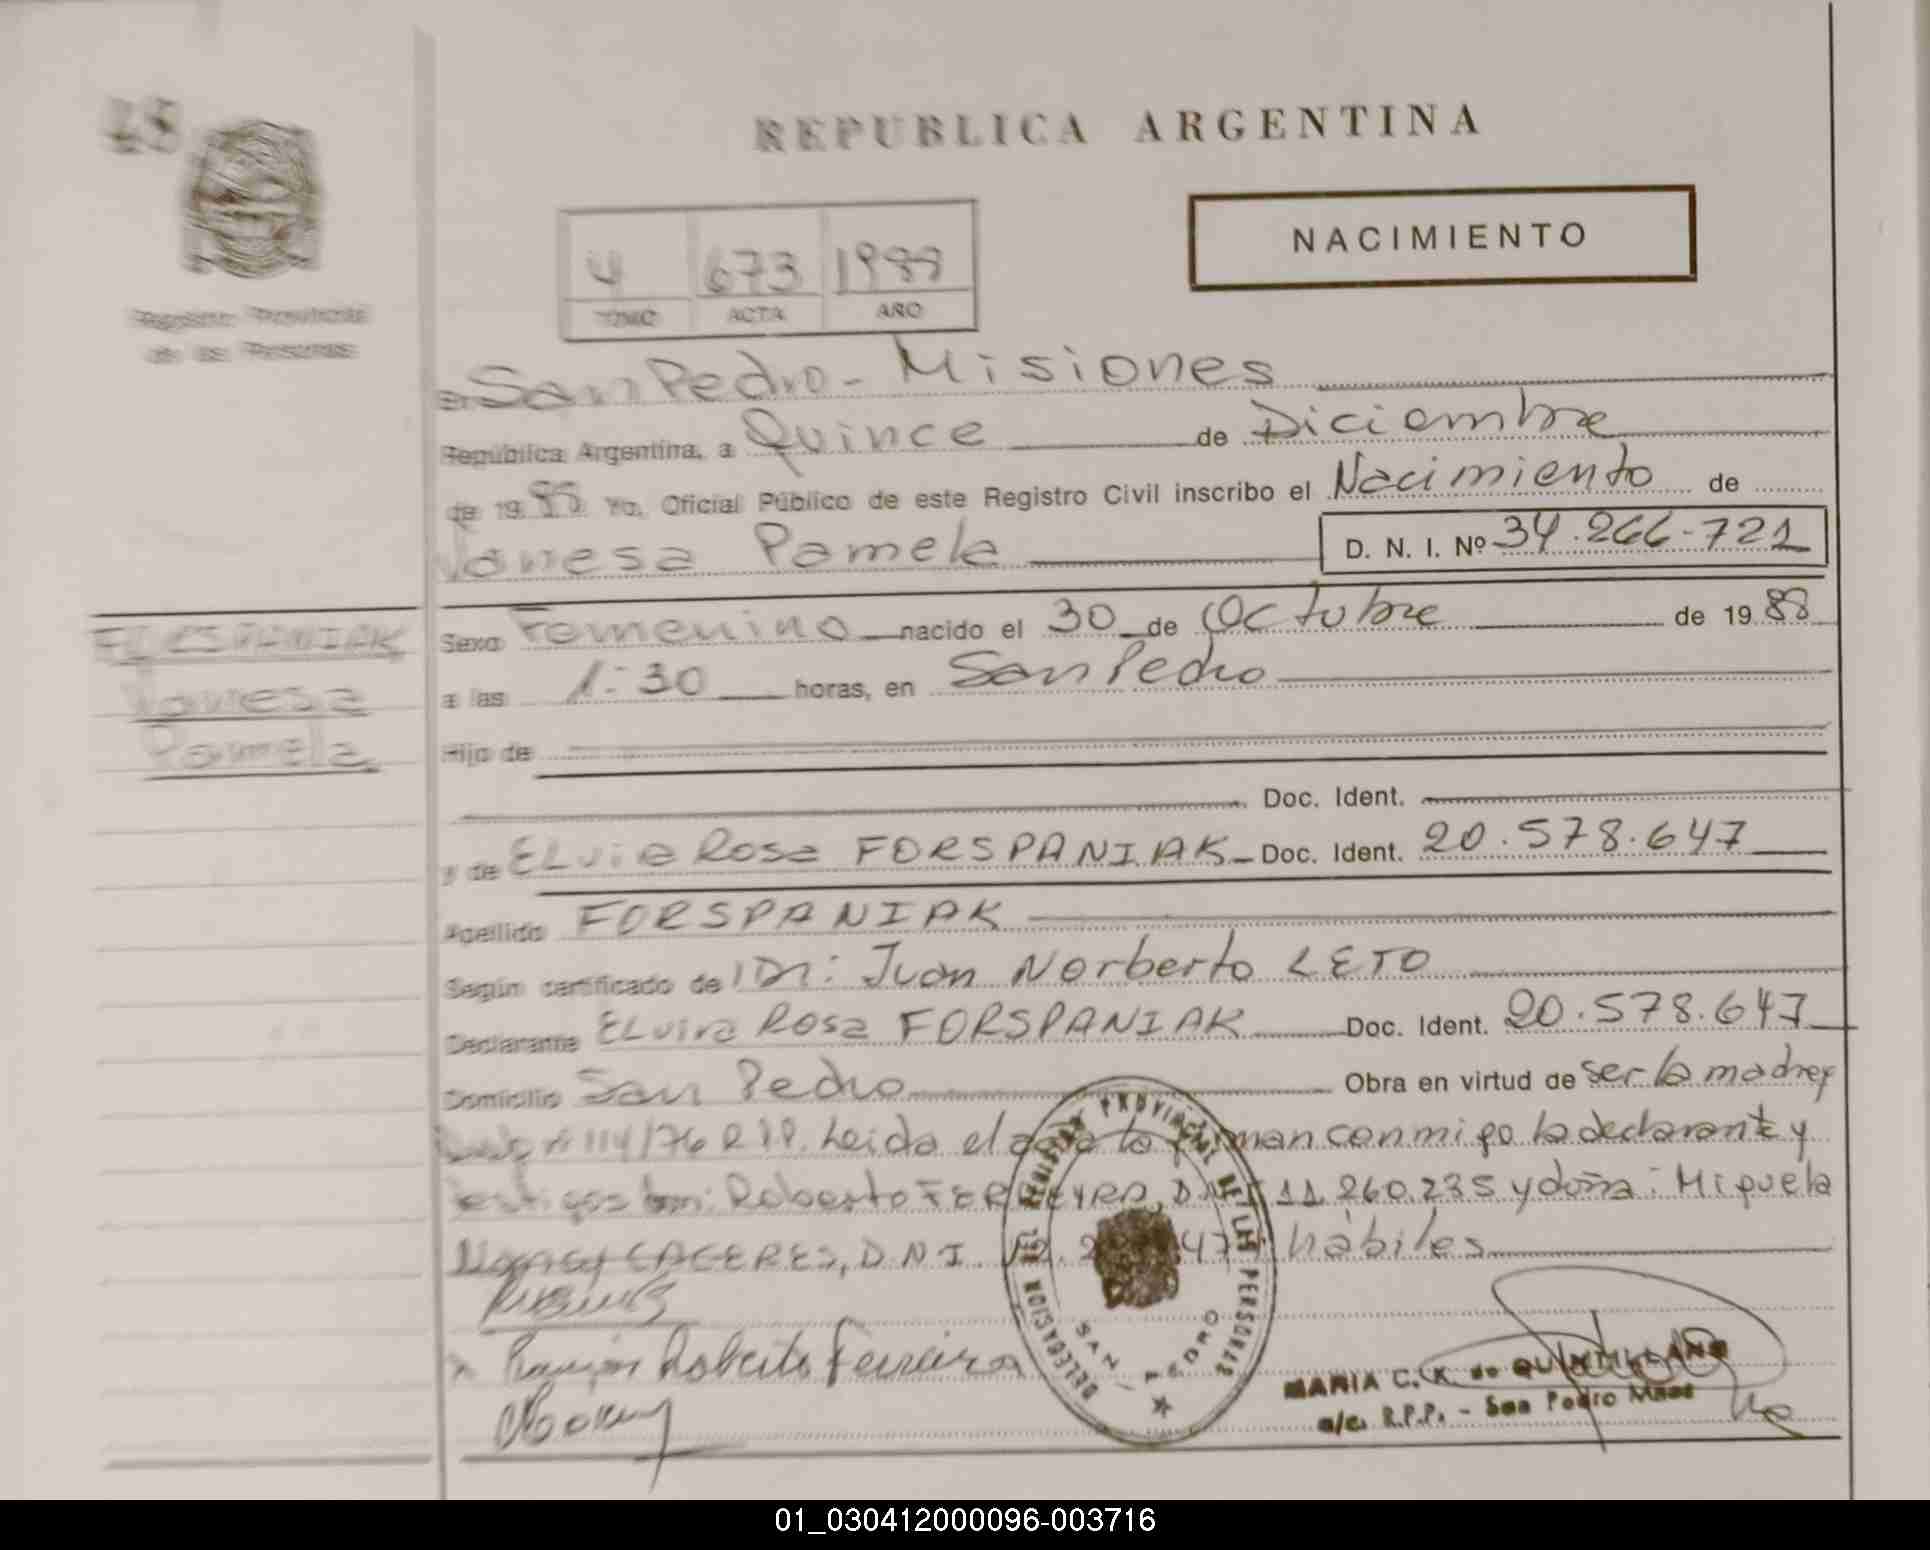 REPUBLICA ARGENTINA
NACIMIENTO
4 673 1988
TOMO ACTA AÑO
Registro Provincial
de las Personas
En San Pedro - Misiones
República Argentina, a Quince de Diciembre
de 1988 Yo, Oficial Público de este Registro Civil inscribo el Nacimiento de
Vanesa Pamela D. N. I. Nº 34.266.721
FORSPANIAK
Vanesa
Pamela
Sexo Femenino nacido el 30 de Octubre de 1988
a las 1:30 horas, en San Pedro
Hijo de
Doc. Ident.
y de Elvira Rosa FORSPANIAK Doc. Ident. 20.578.647
Apellido FORSPANIAK
Según certificado de Dr: Juan Norberto LETO
Declarante Elvira Rosa FORSPANIAK Doc. Ident. 20.578.647
Domicilio San Pedro Obra en virtud de ser la madre y
nº 114/76 R.P.P. Leida el acta la firman conmigo la declarante y
testigos don: Roberto FERREYRA, D.N.I 11.260.235 y doña: Miguela
Nancy CACERES, D.N.I. hábiles
Ramón Roberto Ferreira
DELEGACION DEL REGISTRO PROVINCIAL DE LAS PERSONAS
SAN PEDRO
MARIA C. K. de QUINTILLANO
a/c. R.P.P. - San Pedro Mnes
01_030412000096-003716